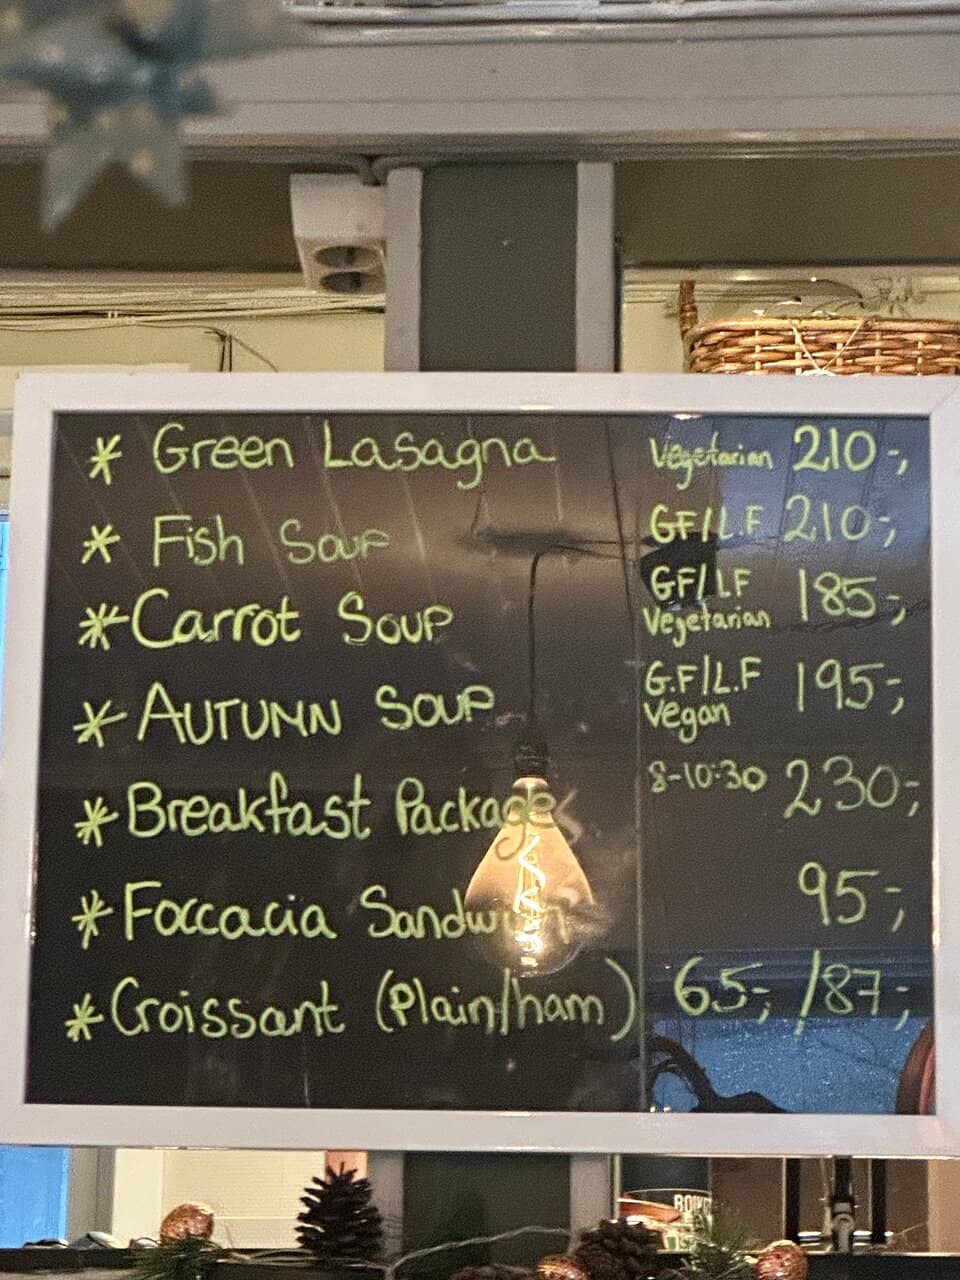 * Green Lasagna Vegetarian 210-,
* Fish Soup GF/L.F 210-,
* Carrot Soup GF/LF Vegetarian 185-,
* AUTUMN SOUP G.F/L.F Vegan 195-,
* Breakfast Package 8-10:30 230-,
* Foccacia Sandwich 95-,
* Croissant (Plain/ham) 65-, /87-,